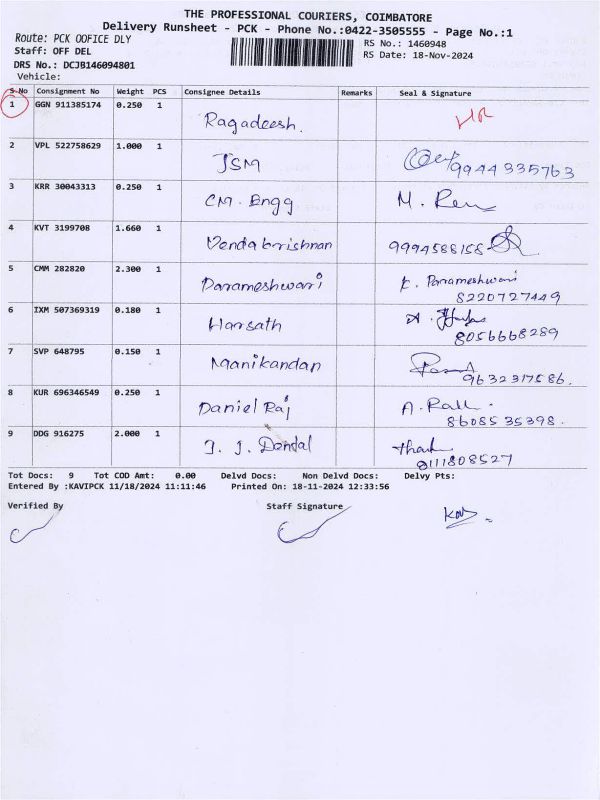 THE PROFESSIONAL COURIERS, COIMBATORE
Delivery Runsheet - PCK - Phone No.:0422-3505555 - Page No.:1
Route: PCK OOFICE DLY
RS No.: 1460948
Staff: OFF DEL
RS Date: 18-Nov-2024
DRS No.: DCJB146094801
Vehicle:
S No Consignment No Weight PCS Consignee Details Remarks Seal & Signature
1 GGN 911385174 0.250 1 Ragadeesh.
2 VPL 522758629 1.000 1 JSM 9944335763
3 KRR 30043313 0.250 1 CM. Engg M.
4 KVT 3199708 1.660 1 Vendakrishnan 9994588158
5 CMM 282820 2.300 1 Parameshwari K. Parameshwari
8220727449
6 IXM 507369319 0.180 1 Harsath
8056668289
7 SVP 648795 0.150 1 Manikandan
9632317586.
8 KUR 696346549 0.250 1 Daniel Raj
8608535398.
9 DDG 916275 2.000 1 J. J. Dental
8111808527
Tot Docs: 9 Tot COD Amt: 0.00 Delvd Docs: Non Delvd Docs: Delvy Pts:
Entered By :KAVIPCK 11/18/2024 11:11:46 Printed On: 18-11-2024 12:33:56
Verified By Staff Signature